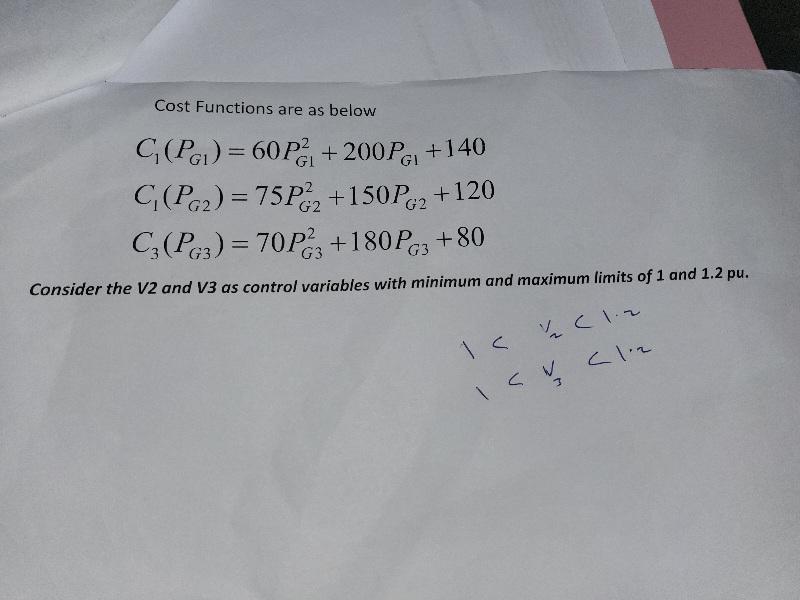 Cost Functions are as below
C₁(P_G1) = 60P²_G1 + 200P_G1 + 140
C₁(P_G2) = 75P²_G2 + 150P_G2 + 120
C₃(P_G3) = 70P²_G3 + 180P_G3 + 80
Consider the V2 and V3 as control variables with minimum and maximum limits of 1 and 1.2 pu.
1 < V₂ < 1.2
1 < V₃ < 1.2